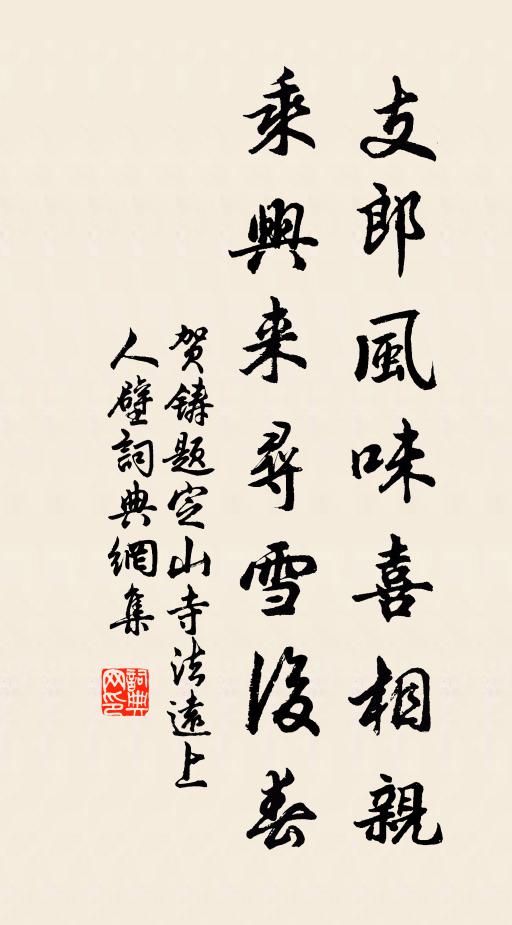 支郎風味喜相親
乘興来尋雪後春
贺鑄题定山寺法遠上
人壁詞典網集
詞典网印